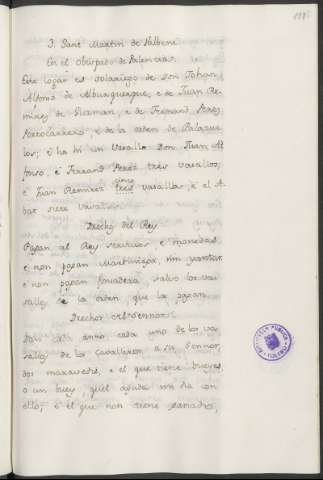 S. Sant Martin de Valbeni
En el Obispado de Palencia.
Este logar es solariego de Don Johan
Alfonso de Alburquerque, e de Juan Re-
mirez de Guzman, e de Fernand Perez
Portocarrero, é de la orden de Palazue-
los; é ha hi un vasallo Don Juan Al
fonso, é Ferrand Perez tres vasallos,
é Juan Remirez tres vasallos, é el A-
bat siete vasallos
Derechos del Rey
Pagan al Rey servicios, é monedas
é non pagan martiniega, nin yantar
é non pagan fonsadera, salvo los va-
sallos de la orden, que la pagan.
Derechos del Sennor
Dan cada anno cada uno de los va-
sallos de los cavalleros a su Sennor,
dos maravedis, e el que tiene bueyes
o un buey, quel ayuda un dia con
ello, é el que non tiene ganados,